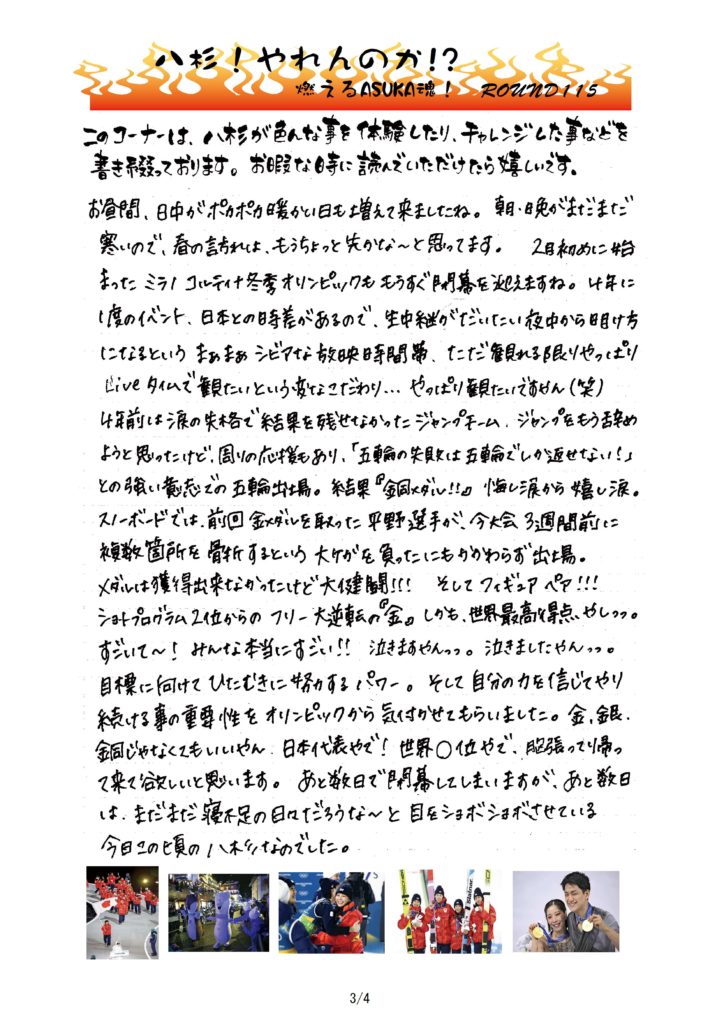 八杉！やれんのか!?
燃えるASUKA魂！ ROUND115
このコーナーは、八杉が色んな事を体験したり、チャレンジした事などを
書き綴っております。お暇な時に読んでいただけたら嬉しいです。
お昼間、日中がポカポカ暖かい日も増えて来ましたね。朝・晩がまだまだ
寒いので、春の訪れは、もうちょっと先かな〜と思ってます。 2月初めに始
まった ミラノ コルティナ冬季オリンピックも もうすぐ閉幕を迎えますね。4年に
1度のイベント、日本との時差があるので、生中継がだいたい夜中から明け方
になるという まぁまぁ シビアな放映時間帯、ただ観れる限りやっぱり
Liveタイムで観たいという変なこだわり… やっぱり観たいですやん(笑)
4年前は涙の失格で結果を残せなかったジャンプチーム、ジャンプをもう辞め
ようと思ったけど、周りの応援もあり、「五輪の失敗は五輪でしか返せない！」
との強い意志での五輪出場。結果『銅メダル!!』 悔し涙から嬉し涙。
スノーボードでは、前回金メダルを取った平野選手が、今大会3週間前に
複数箇所を骨折するという大ケガを負ったにもかかわらず出場。
メダルは獲得出来なかったけど大健闘!!! そしてフィギュア ペア!!!
ショートプログラム2位からの フリー大逆転の『金』しかも、世界最高得点やしっっ。
すごいて〜！ みんな本当にすごい!! 泣きますやんっっ。泣きましたやんっっ。
目標に向けて ひたむきに努力するパワー。そして自分の力を信じてやり
続ける事の重要性をオリンピックから気付かせてもらいました。金、銀、
銅じゃなくてもいいやん、日本代表やで！世界〇位やで、胸張って帰っ
て来て欲しいと思います。 あと数日で閉幕してしまいますが、あと数日
は、まだまだ寝不足の日々だろうな〜と 目をショボショボさせている
今日この頃の八杉なのでした。
3/4